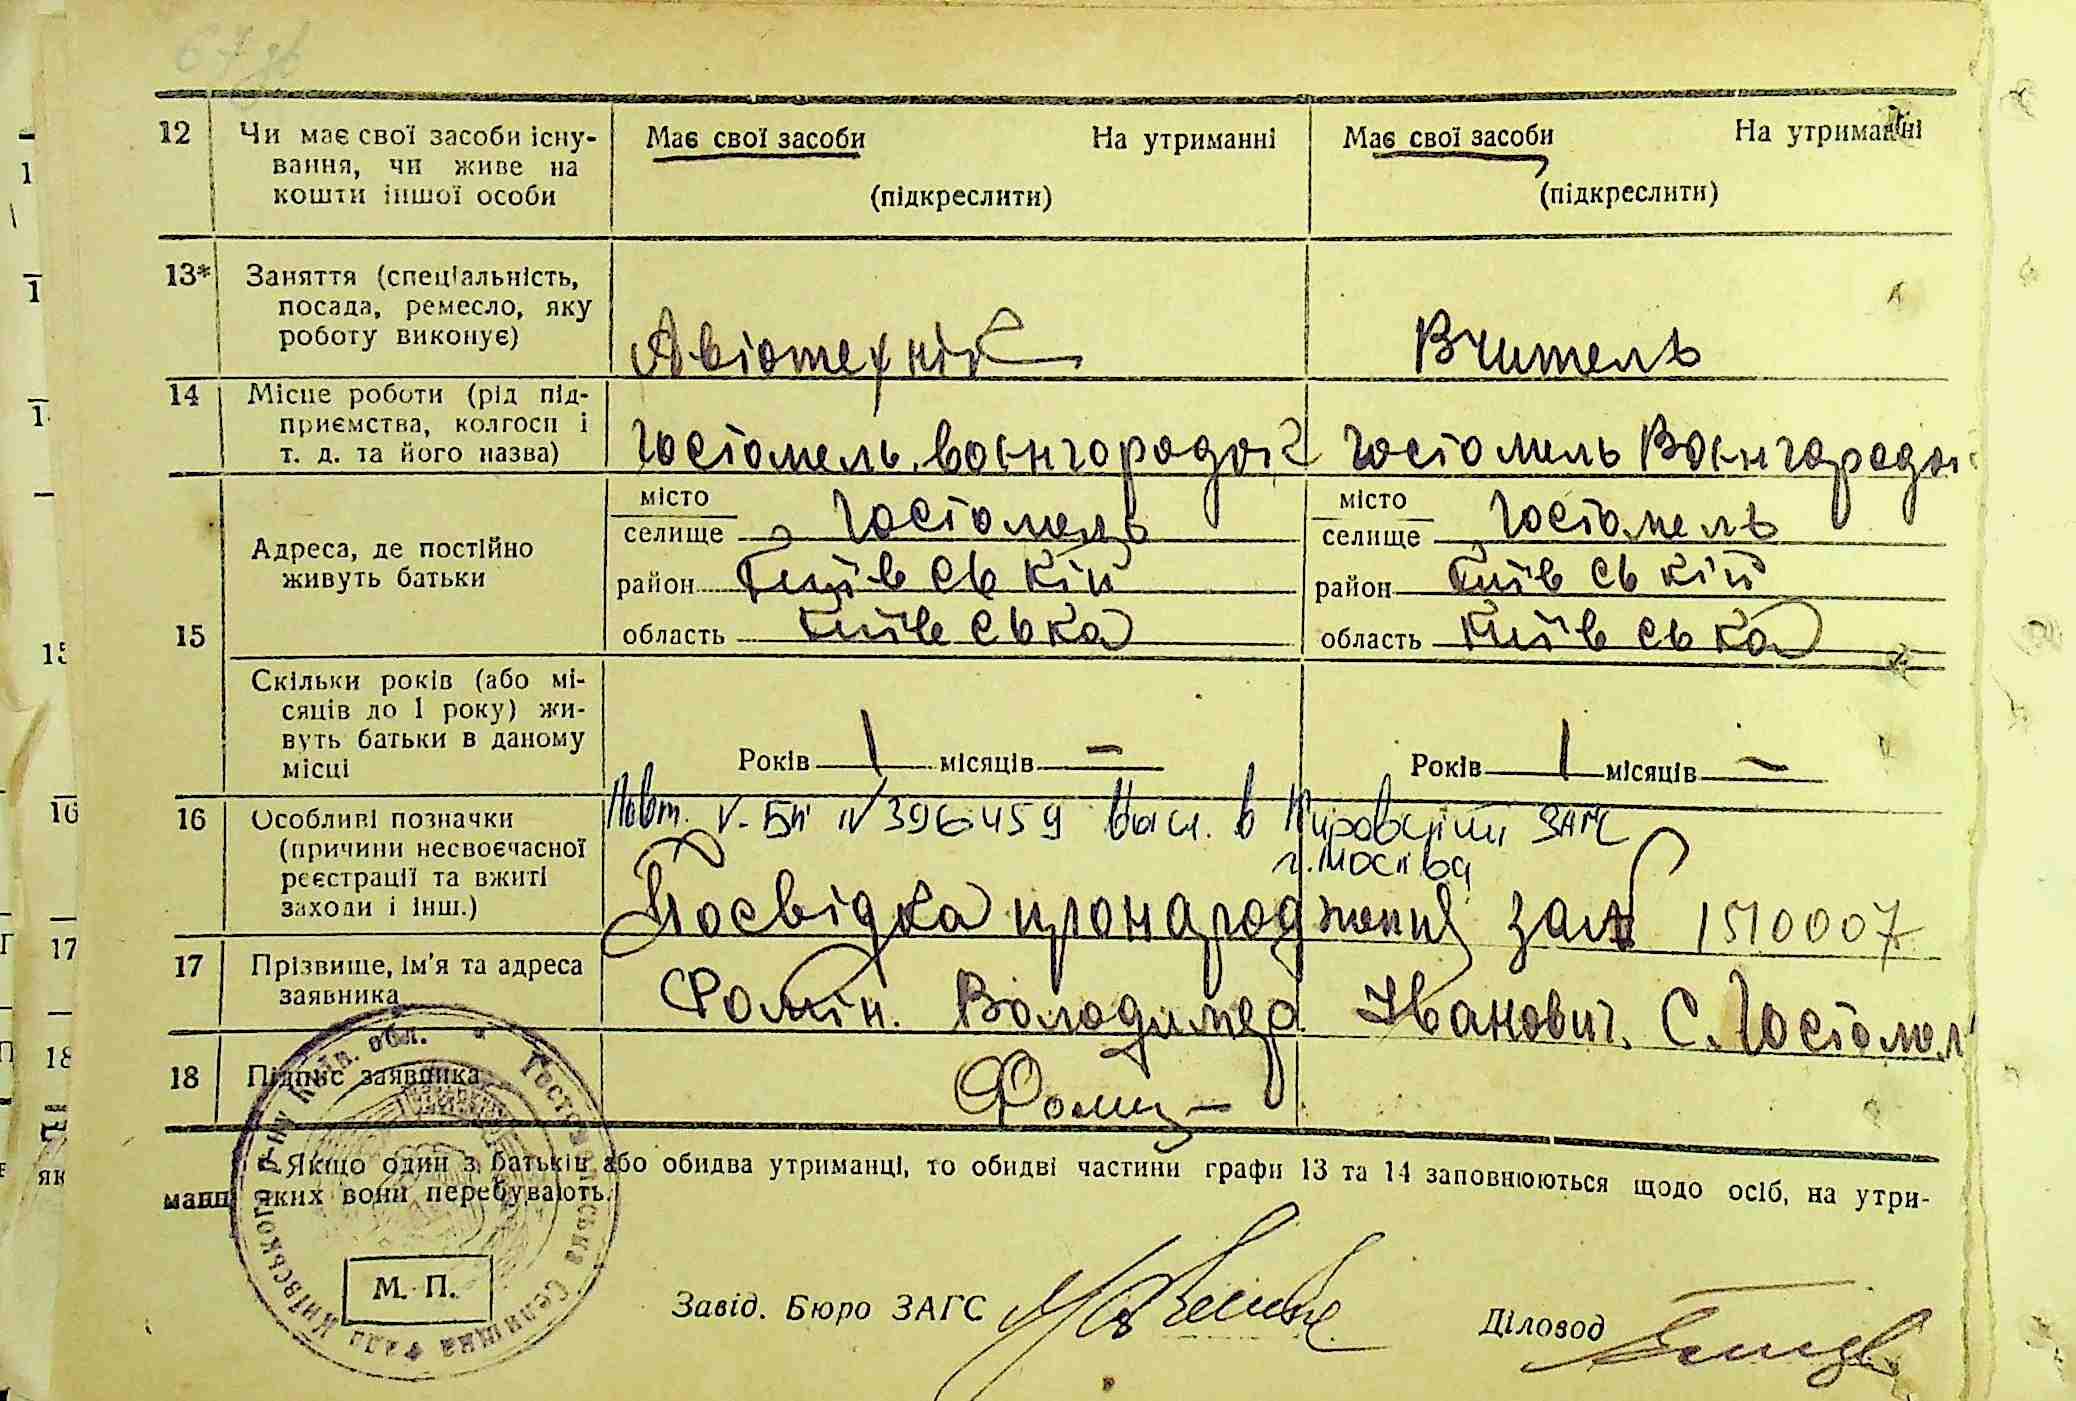 12 Чи має свої засоби існу-
вання, чи живе на
кошти іншої особи
Має свої засоби На утриманні
(підкреслити)
Має свої засоби На утриманні
(підкреслити)
13* Заняття (спеціальність,
посада, ремесло, яку
роботу виконує)
Авіотехнік
Вчитель
14 Місце роботи (рід під-
приємства, колгосп і
т. д. та його назва)
Гостомель воєнгородок
Гостомель Воєнгородок
15 Адреса, де постійно
живуть батьки
місто
селище Гостомель
район Київський
область Київська
місто
селище Гостомель
район Київський
область Київська
Скільки років (або мі-
сяців до 1 року) жи-
вуть батьки в даному
місці
Років 1 місяців –
Років 1 місяців –
16 Особливі позначки
(причини несвоєчасної
реєстрації та вжиті
заходи і інш.)
Повт. V-БП N 396459 Высл. в Кировский ЗАГС
г. Москва
Посвідка про народження за № 1510007
17 Прізвище, ім'я та адреса
заявника
Фомін. Володимер Іванович. С. Гостомель
18 Підпис заявника
Фомин
Якщо один з батьків або обидва утриманці, то обидві частини графи 13 та 14 заповнюються щодо осіб, на утри-
манні яких вони перебувають.
Гостомельська Селищна Рада Київського р-ну Київ. обл.
М. П.
Завід. Бюро ЗАГС
Діловод